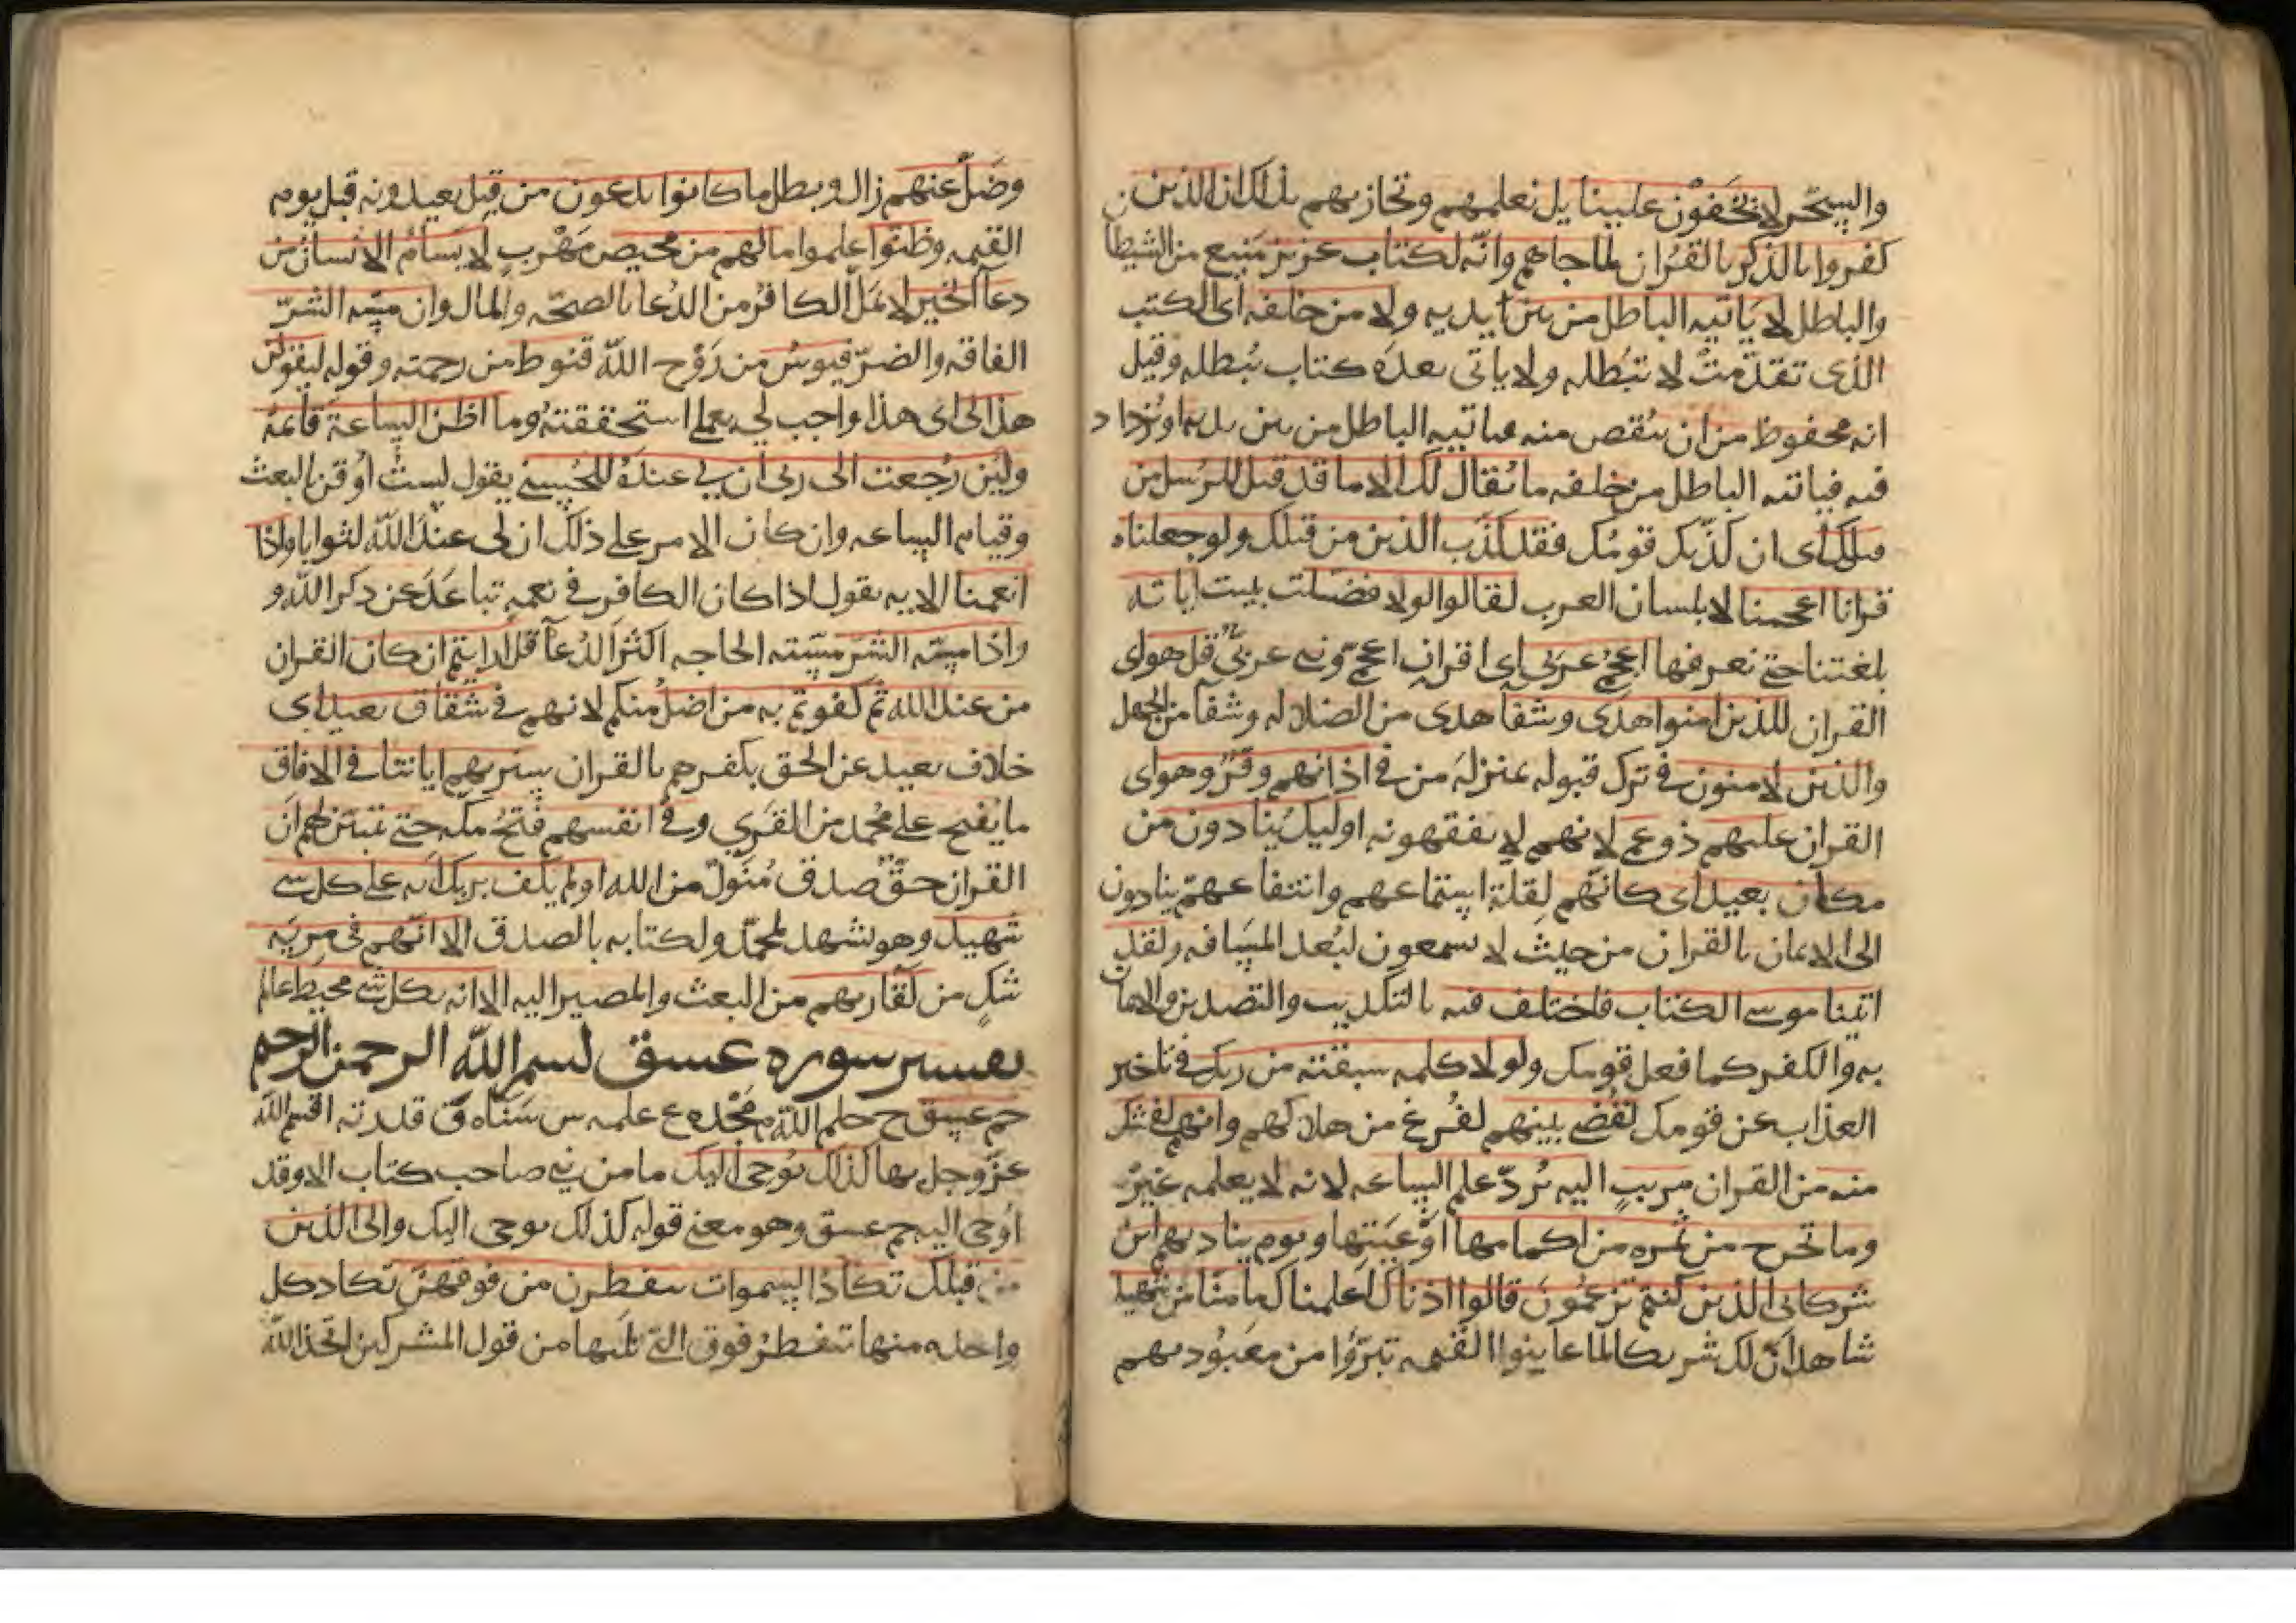 والسحر لا يخفون علينا بل نعلمهم ونجازيهم بذلك ان الذين
كفروا بالذكر بالقران لما جاهم وانه لكتاب عزيز منيع من الشيطان
والباطل لا ياتيه الباطل من بين يديه ولا من خلفه اى الكتب
التى تقدمت لا تبطله ولا ياتى بعده كتاب يبطله وقيل
انه محفوظ من ان ينقص منه فياتيه الباطل من بين يديه او يزداد
فيه فياتيه الباطل من خلفه ما يقال لك الا ما قد قيل للرسل من
قبلك اى ان كذبك قومك فقد كذب الذين من قبلك ولو جعلناه
قرانا اعجميا لا بلسان العرب لقالوا لولا فصلت بينت اياته
بلغتنا حتى نعرفها اعجمي عربى اى اقران اعجمي ونبي عربي قل هو اى
القران للذين امنوا هدى وشفا هدى من الضلاله وشفا من الجهل
والذين لا يومنون في ترك قبوله بمنزلة من في اذانهم وقر وهو اى
القران عليهم ذو عمى لانهم لا يفقهونه اوليك ينادون من
مكان بعيد اى كانهم لقلة استماعهم وانتفاعهم ينادون
الى الايمان بالقران من حيث لا يسمعون لبعد المسافه ولقد
اتينا موسى الكتاب فاختلف فيه بالتكذيب والتصديق والايمان
به والكفر كما فعل قومك ولولا كلمه سبقت من ربك في تاخير
العذاب عن قومك لقضي بينهم لفرغ من هلاكهم وانهم لفي شك
منه من القران مريب اليه يرد علم الساعه لانه لا يعلمه غيره
وما تخرج من ثمره من اكمامها اوعيتها ويوم يناديهم اين
شركائى الذين كنتم تزعمون قالوا اذناك اعلمناك ما منا من شهيد
شاهد ان لك شريكا لما عاينوا القيمه تبرؤا من معبوديهم
وضل عنهم زال وبطل ما كانوا يدعون من قبل يعبدونه قبل يوم
القيمه وظنوا علموا ما لهم من محيص مهرب لا يسام الانسان من
دعا الخير لا يمل الكافر من الدعا بالصحه والمال وان مسه الشر
الفاقه والضر فيوس من روح الله قنوط من رحمته وقوله ليقولن
هذا لى اى هذا واجب لي بعملي استحققته وما اظن الساعة قائمة
ولين رجعت الى ربى ان لي عنده للحسنى يقول لست اوقن بالبعث
وقيام الساعه وان كان الامر على ذلك ان لى عند الله لثوابا واذا
انعمنا الايه يقول اذا كان الكافر في نعمه تباعد عن ذكر الله و
واذا مسه الشر مسته الحاجه اكثر الدعا قل ارايتم ان كان القران
من عند الله ثم كفرتم به من اضل منكم لانهم في شقاق بعيد اى
خلاف بعيد عن الحق بكفرهم بالقران سنريهم اياتنا في الافاق
ما يفتح على محمد من القرى وفي انفسهم فتح مكه حتى يتبين لهم ان
القران حق صدق منزل من الله اولم يكف بربك انه على كل شي
شهيد وهو شهد لمحمد ولكتابه بالصدق الا انهم في مريه
شك من لقا ربهم من البعث والمصير اليه الا انه بكل شي محيط عالم
تفسير سوره عسق بسم الله الرحمن الرحيم
حم عسق ح حلم الله م مجده ع علمه س سناه ق قدرته اقسم الله
عز وجل بها كذلك يوحى اليك ما من نبي صاحب كتاب الا وقد
اوحى اليه حم عسق وهو معنى قوله كذلك يوحى اليك والى الذين
من قبلك تكاد السموات يتفطرن من فوقهن تكاد كل
واحده منها تتفطر فوق التى تليها من قول المشركين اتخذ الله